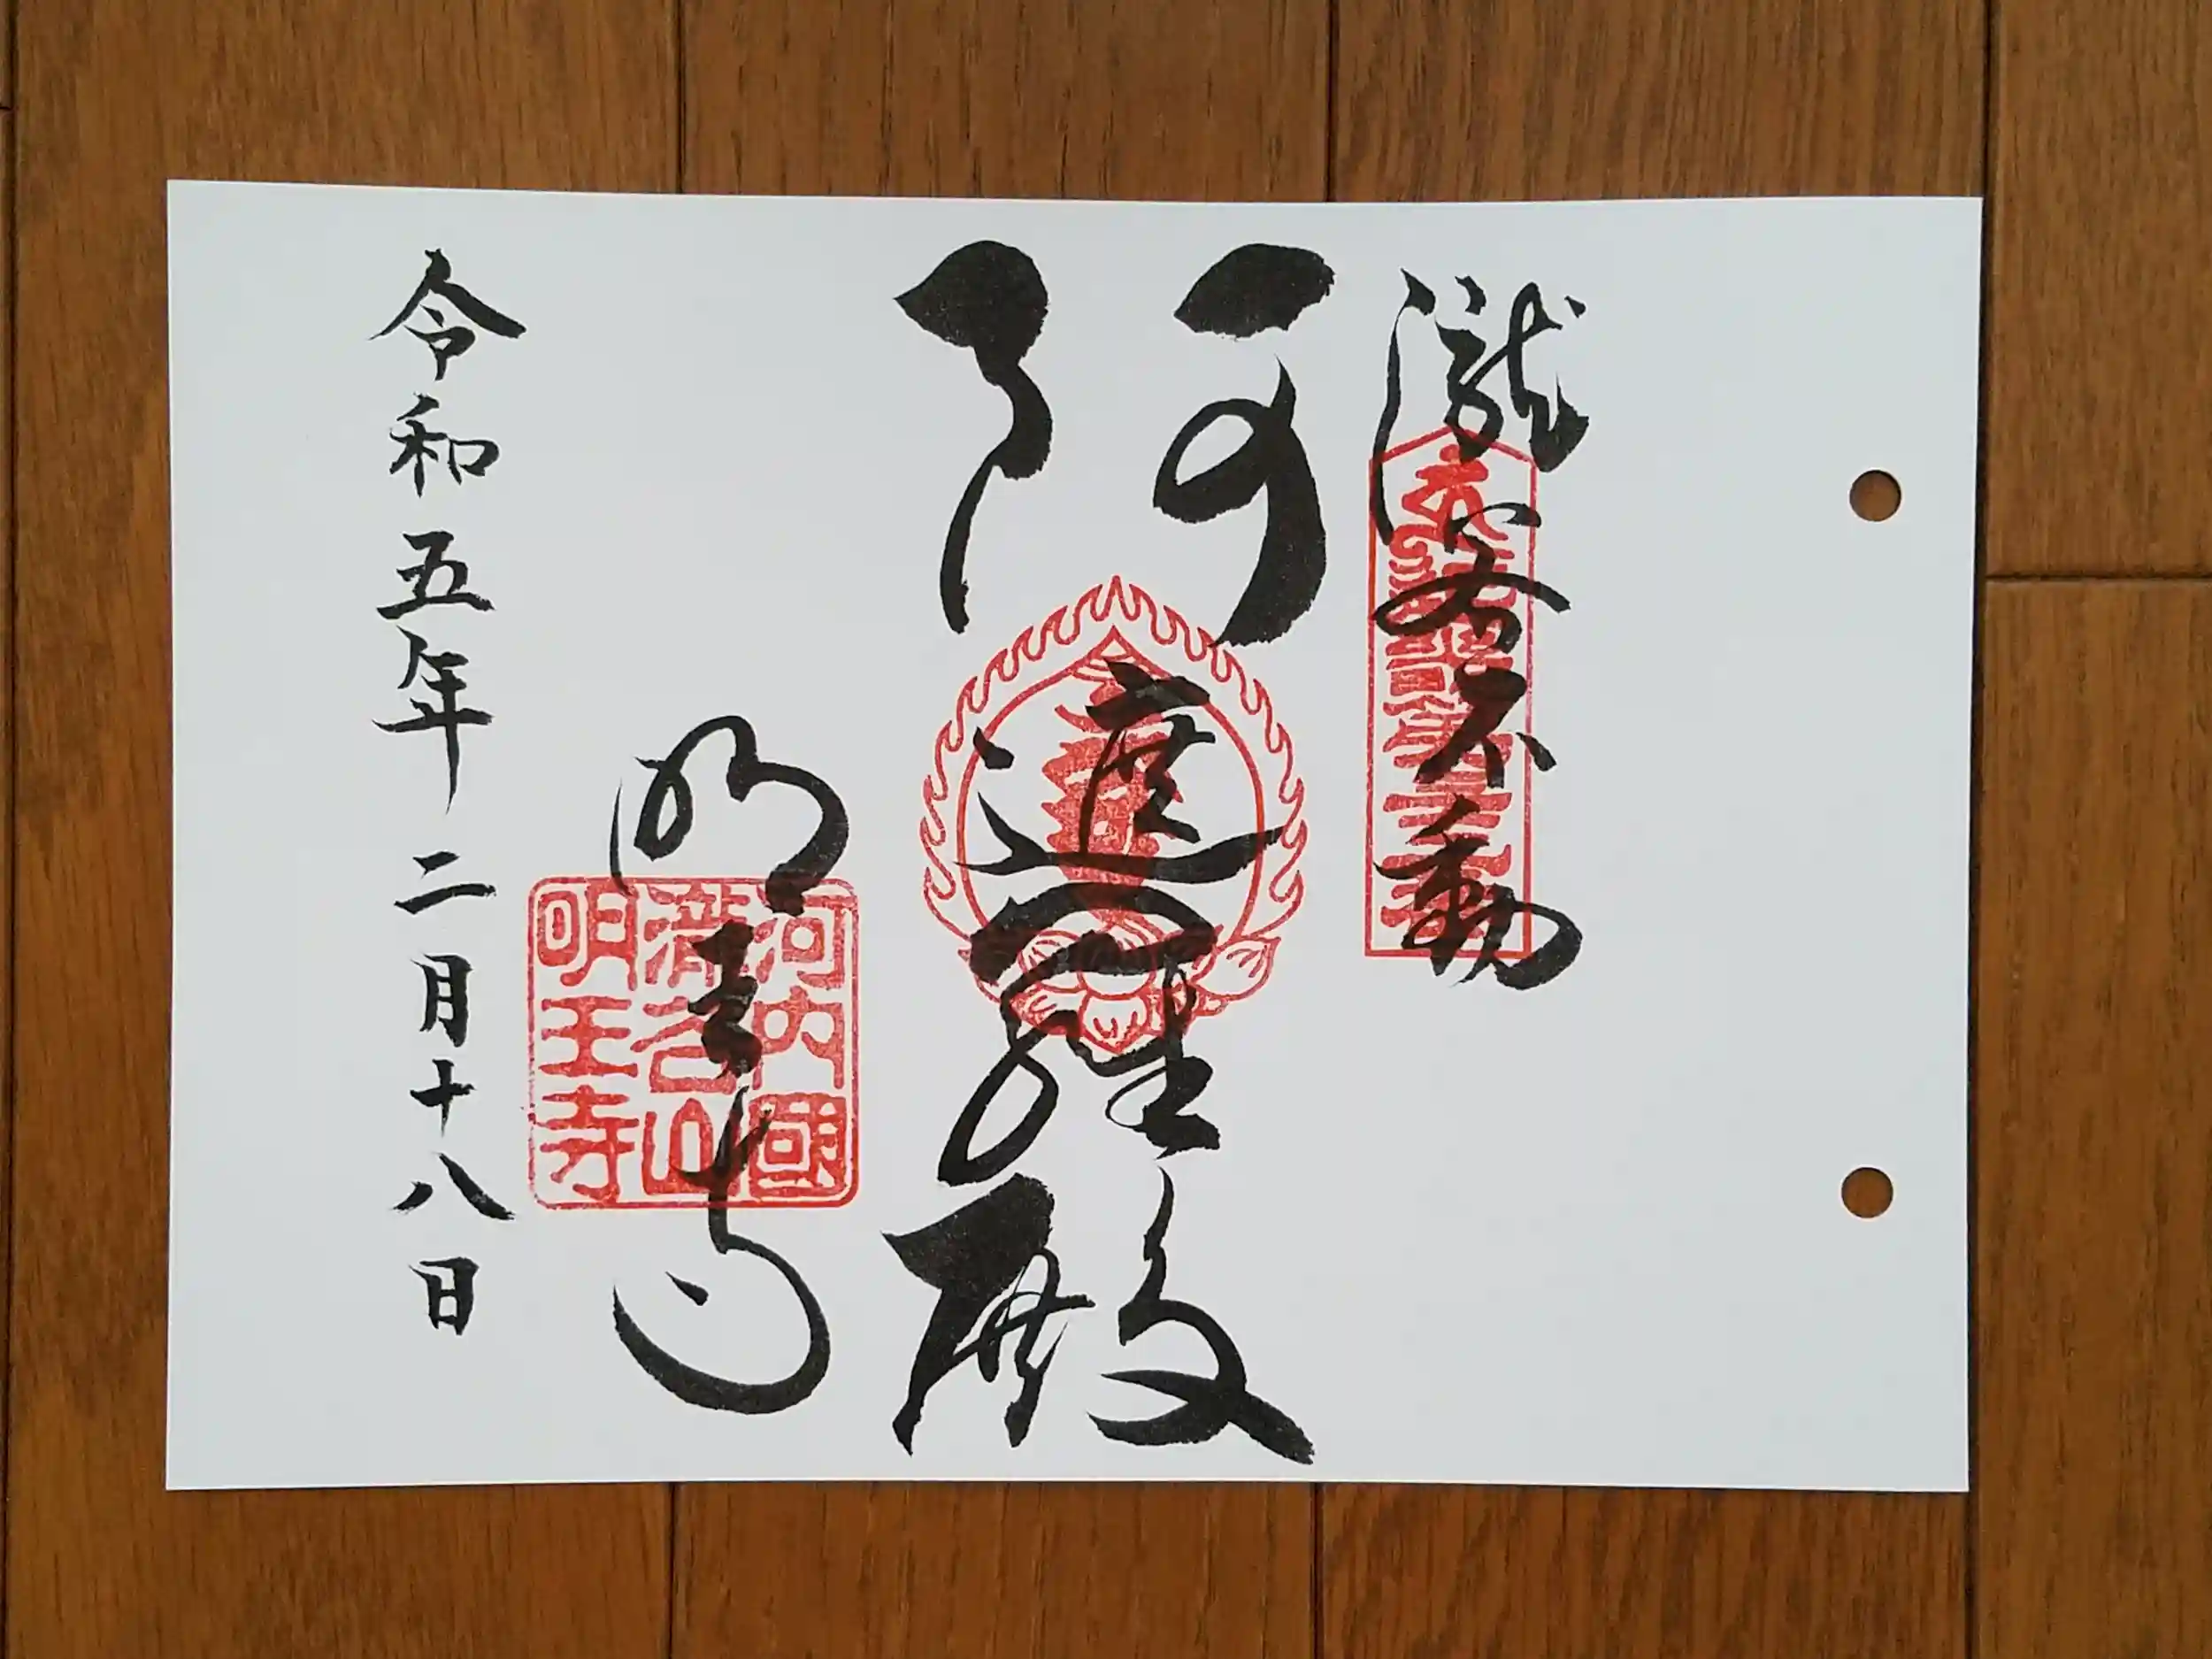 瀧谷不動
阿遮羅殿
明王寺
河内國
瀧谷山
明王寺
令和五年二月十八日